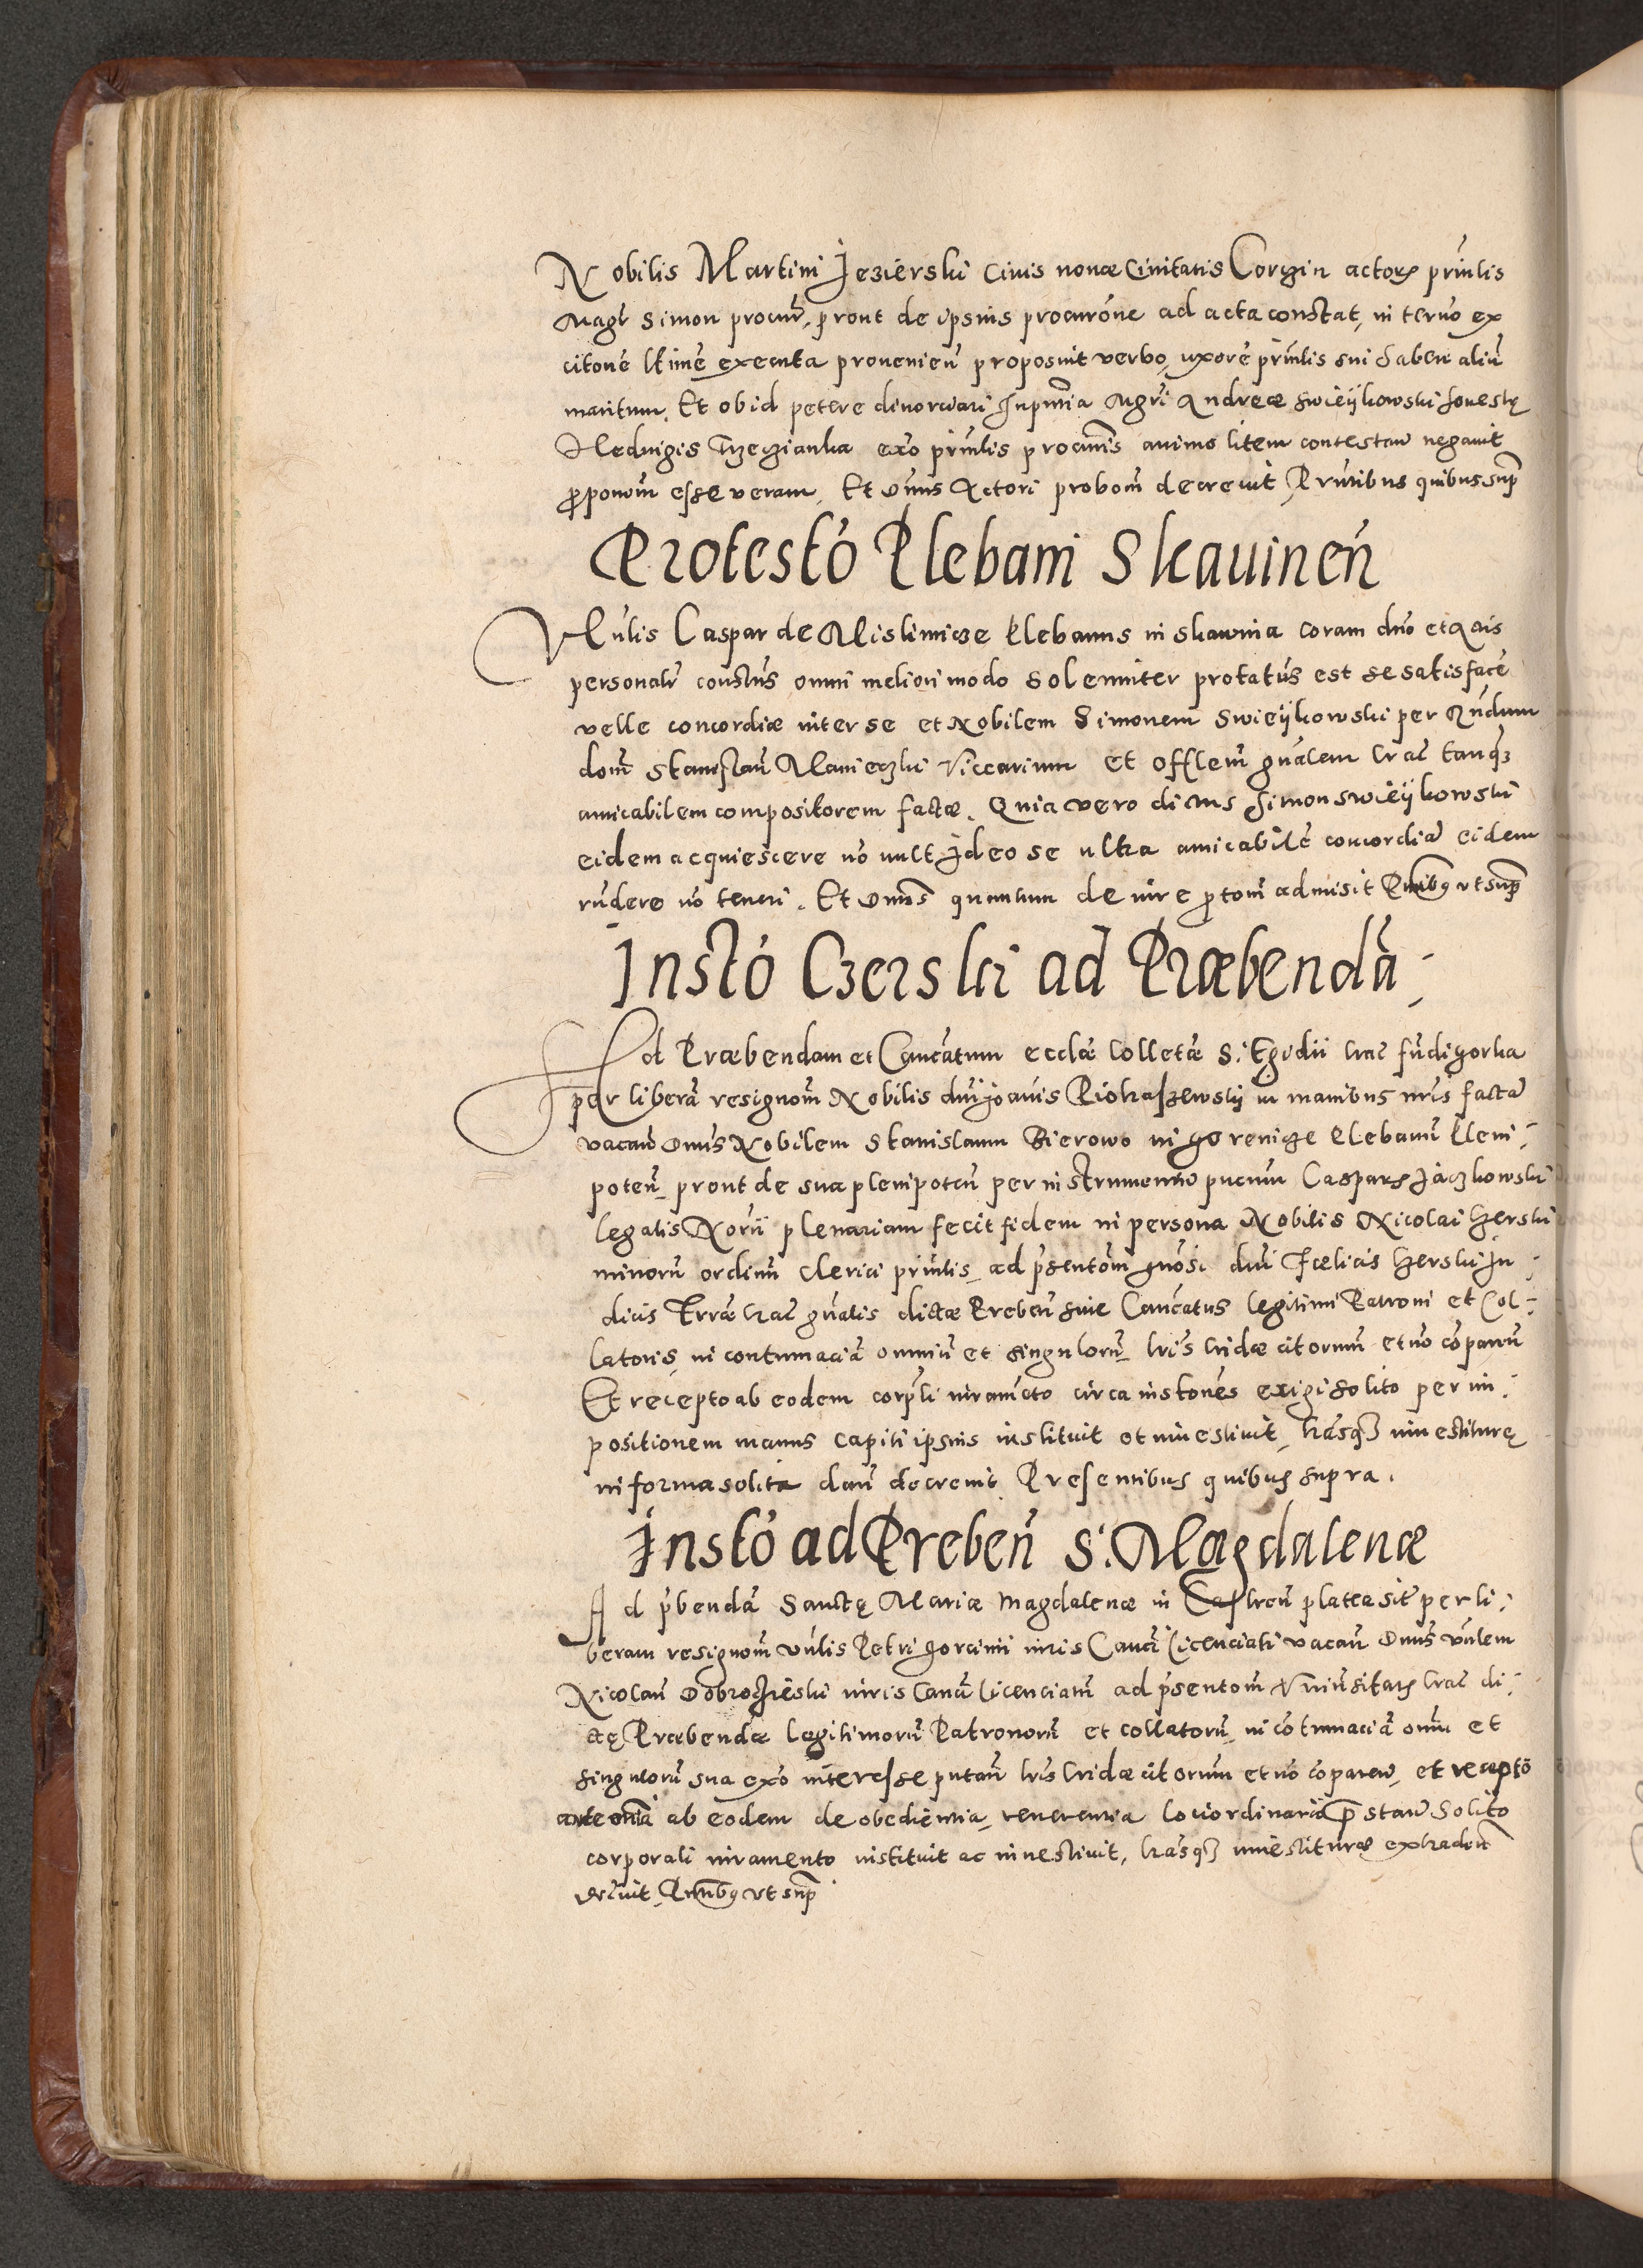 Nobilis Martini Jezierski Civis novæ Civitatis Corzin actoris prin̄lis
Magr̄ Simon procur̄, prout de ipsius procurōne ad acta constat, in ter̄no ex
citōne ltīme executa provenien̄ proposuit verbo, uxorē prin̄lis sui habere aliū
maritum. Et ob id petere divortiari Jn p̄ntia Mgrī Andreæ Swieÿkowski honestę
Hedvigis exō prin̄lis procur̄is animo litem contestan̄ negavit
proponōm̄ esse veram. Et Dn̄us Actori probōm̄ decrevit, Prn̄tibus quibus sup̄
Protestō Plebani Skavinen̄
Vn̄lis Caspar de Mislimicze Plebanus in Skawina coram dn̄o et Actis
personalr̄ constūs omni meliori modo Solenniter protatūs est se satisfacē
velle concordiæ inter se et Nobilem Simonem Swieÿkowski per Rn̄dum
dom̄ Stanislaū Manieczki Viccarium et Offlem̄ gn̄alem Crac̄ tanq̄
amicabilem compositorem factæ. Quia vero dictus Simon Swieÿkowski
eidem acquiescere nō vult Jdeo se ultra amicabilē concordiā eidem
rn̄dere nō teneri. Et Dn̄us quantum de iure protom̄ admisit Pn̄tibus ut sup̄
Jnstō Czerski ad Præbendā
Ad Præbendam et Canc̄atum ecclæ Colletæ S. Egidii Crac̄ fūdi gorka
per liberā resignom̄ Nobilis dn̄i Joānis Piotraszewskÿ in manibus nrīs factā
vacan̄ Dn̄us Nobilem Stanislaum Bierowo in gorenicze Plebanū Pleni-
poten̄ prout de sua plenipoten̄ per instrumentū pucum̄ Caspars Jaczkowski
legalis Norii plenariam fecit fidem in persona Nobilis Nicolai Czerski
minorū ordinū Clerici prin̄lis ad p̄sentōm̄ gnōsi dn̄i Fœlicis Czerski Ju-
dicis Terræ Crac̄ gn̄alis dictæ Preben̄ sive Canc̄atus legitimi Patroni et Col-
latoris, in contumaciā omniū et singulorū lrīs Cridæ citorum et nō cōparen̄
Et recepto ab eodem corpr̄li iuramento circa instōnes exigi solito per im-
positionem manus capiti ipsius instituit et investivit, lrāsq̄ investiturę
in forma solita dari decrevit Presentibus quibus supra.
Jnstō ad Preben̄ S. Magdalenæ
Ad p̄bendā Sanctę Mariæ Magdalenæ in Castren̄ platea sit̄ per li-
beram resignom̄ vn̄lis Petri gorcini iuris Canci Licenciati vacan̄ Dn̄us vn̄lem
Nicolaū Dobrocieski iuris Canci Licenciatū ad p̄sentōm̄ Univn̄sitatis Crac̄ di-
ctę Præbendæ legitimorū Patronorū et collatorū in cōtumaciā omniū et
singulorū sua exō interesse putan̄ lrīs Cridæ citorum et nō cōparen̄, et receptō
ante om̄ia ab eodem de obedientia, reverentia Loci ordinariō præstari solito
corporali iuramento instituit ac investivit, lrāsq̄ investituræ extraden̄
decrevit, Prn̄tibus ut sup̄